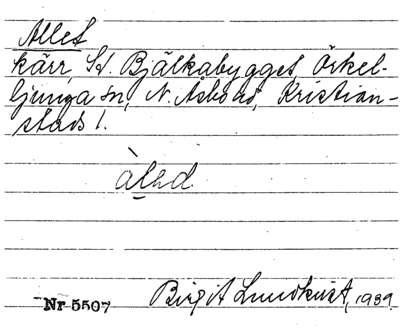 Allet
kärr, St. Bjälkabygget, Örkel-
ljunga sn, N. Åsbo hd, Kristian-
stads l.
Nr 5507
Birgit Lundkvist, 1939.